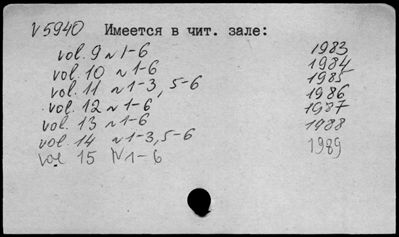 V5940 Имеется в чит. зале:
vol. 9 N 1-6 1983
vol. 10 N 1-6 1984
vol. 11 N 1-3, 5-6 1985
vol. 12 N 1-6 1986
vol. 13 N 1-6 1987
vol. 14 N 1-3, 5-6 1988
vol 15 N 1-6 1989